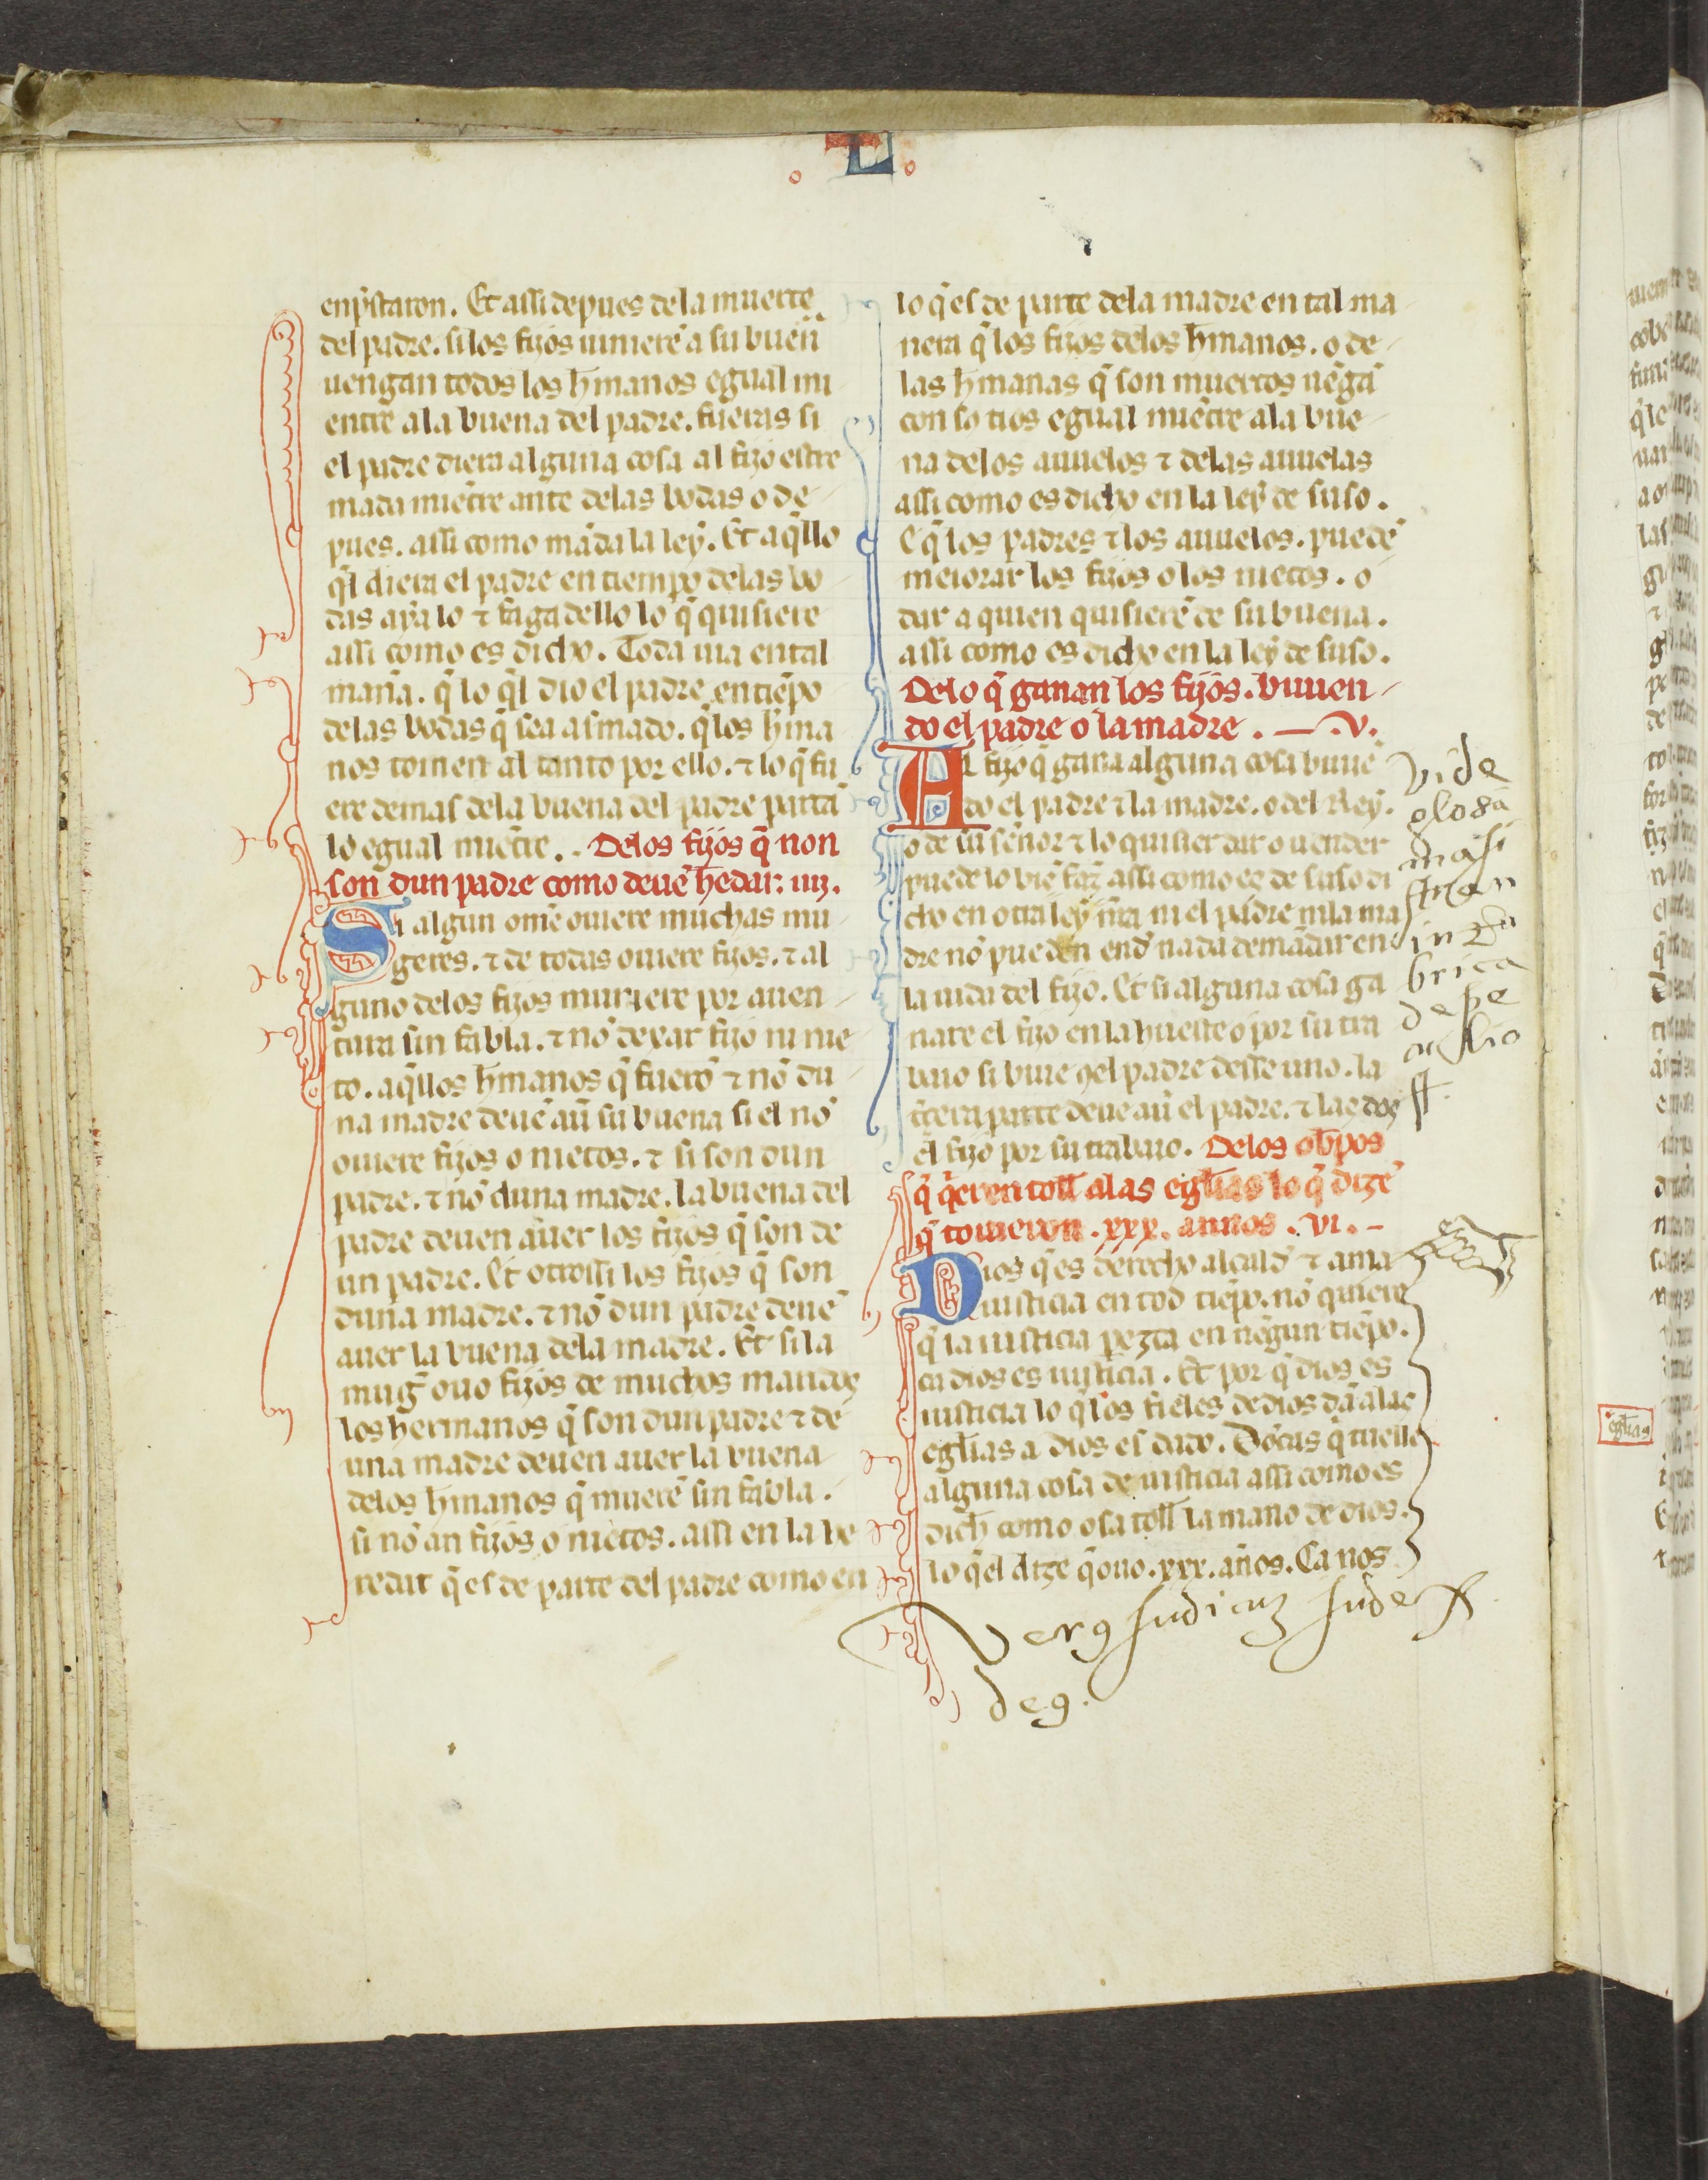 L
enp̃staron. Et assi depues dela muerte
del padre. si los fijos uinierẽ a su buen̄
uengan todos los h̃manos egual mi
entre ala buena del padre. fueras si
el padre diera alguna cosa al fijo estre
mada miẽtre ante delas bodas o de
pues. assi como mãda la ley. Et aq̃llo
q̃l diera el padre en tiempo delas bo
das aya lo ⁊ faga dello lo q̃ quisiere
assi como es dicho. Toda uia en tal
mañ̃a. q̃ lo q̃l dio el padre en tiẽpo
delas bodas q̃ sea asmado. q̃ los h̃ma
nos tomen al tanto por ello. ⁊ lo q̃ fu
ere demas dela buena del padre partã
lo egual miẽtre. . Delos fijos q̃ non
son dun padre como deuẽ h̃edar: iiij.
Si algun om̃e ouiere muchas mu
geres. ⁊ de todas ouiere fijos. ⁊ al
guno delos fijos muriere por auen
tura sin fabla. ⁊ nõ dexar fijo ni nie
to. aq̃llos h̃manos q̃ fuerõ ⁊ nõ du
na madre deuẽ aũ su buena si el nõ
ouiere fijos o nietos. ⁊ si son dun
padre. ⁊ nõ duna madre. la buena del
padre deuen auer los fijos q̃ son de
un padre. Et otrossi los fijos q̃ son
duna madre. ⁊ nõ dun padre deuẽ
auer la buena dela madre. Et si la
mug̃ ouo fijos de muchos maridos
los hermanos q̃ son dun padre ⁊ de
una madre deuen auer la buena
delos h̃manos q̃ muerẽ sin fabla.
si nõ an fijos o nietos. assi en la he
redat q̃ es de parte del padre como en
lo q̃ es de parte dela madre en tal ma
nera q̃ los fijos delos h̃manos. o de
las h̃manas q̃ son muertos uẽgã
con so tios egual miẽtre ala bue
na delos auuelos ⁊ delas auuelas
assi como es dicho en la ley de suso.
E q̃ los padres ⁊ los auuelos. puedẽ
meiorar los fijos o los nietos. o
dar a quien quisierẽ de su buena.
assi como es dicho en la ley de suso.
Delo q̃ ganan los fijos. biuien
do el padre o la madre. — .V.
El fijo q̃ gana alguna cosa biuiẽ
do el padre ⁊ la madre. o del Rey.
o de su señor ⁊ lo quisier dar o uender
puede lo biẽ faz̃ assi como es de suso di
cho en otra ley ñra ni el padre ni la ma
dre nõ pueden end̃ nada demãdar en
la uida del fijo. Et si alguna cosa ga
nare el fijo en la hueste o por su tra
baio si biue ꝯel padre desse uno. la
t̃cera parte deue aũ el padre. ⁊ las dos
el fijo por su trabaio. Delos ob̃pos
q̃ q̃eren toll̃ alas egl̃ias lo q̃ dizẽ
q̃ touieron .xxx. annos .vi. -
Dios q̃ es derecho alcald̃ ⁊ ama
iusticia en tod tiẽpo. nõ quiere
q̃ la iusticia pezca en nẽgun tiẽpo.
ca dios es iusticia. Et por q̃ dios es
iusticia lo q̃ los fieles de dios dã alas
egl̃ias a dios es dado. Dõcas q̃ tuelle
alguna cosa de iusticia assi como es
dich̃ como osa toll̃ la mano de dios.
lo q̃ el dize q̃ ouo .xxx. años. Ca nos
vide
glosã
in rũ
brica
de pe
culio
ff.
deꝯ.
egl̃ias